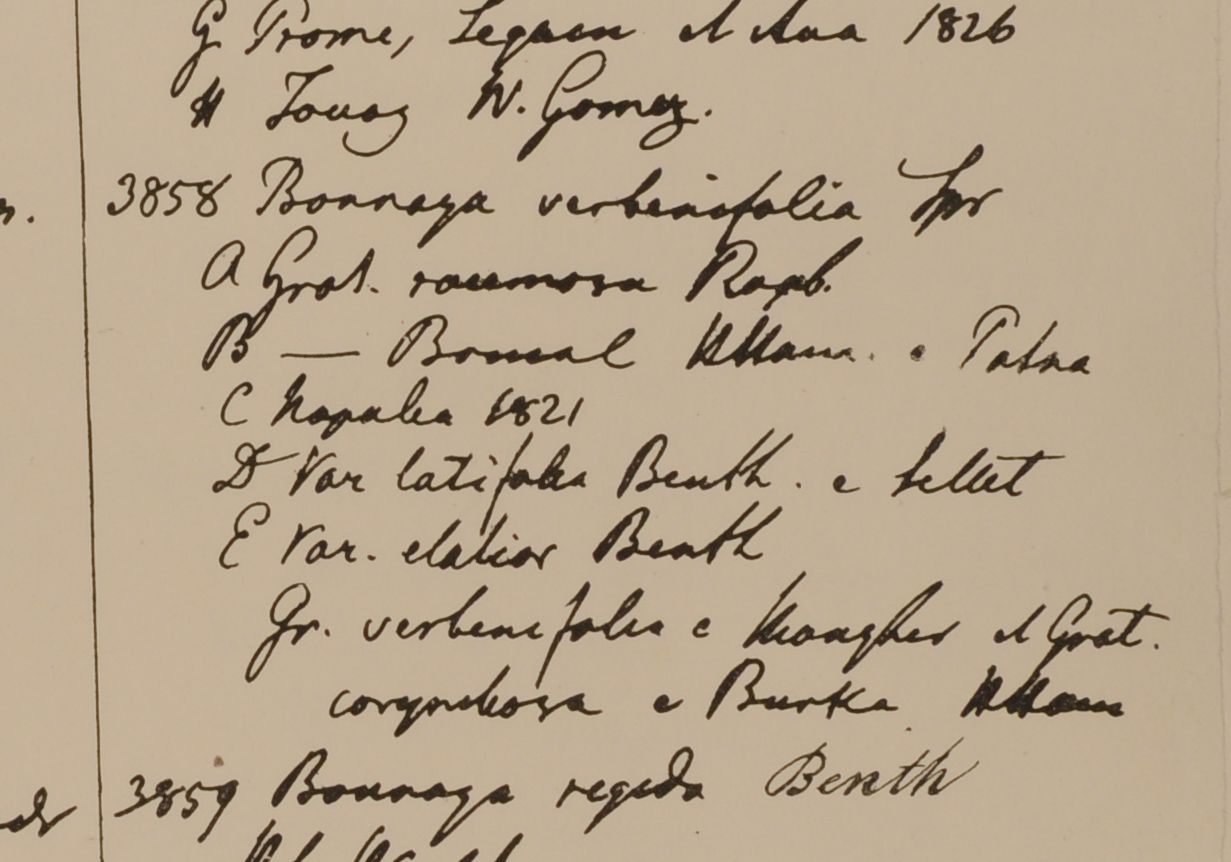 G Prome, Segaen et Ava 1826
H Tavoy W. Gomez.
3858 Bonnaya verbenifolia Spr
A Grat. racemosa Roxb.
B — Bomal HHam. e Patna
C Napalia 1821
D Var latifolia Benth. e Sellet
E Var. elatior Benth
Gr. verbenifolia e Mongher et Grat.
corymbosa e Burka HHam
3859 Bonnaya rigida Benth